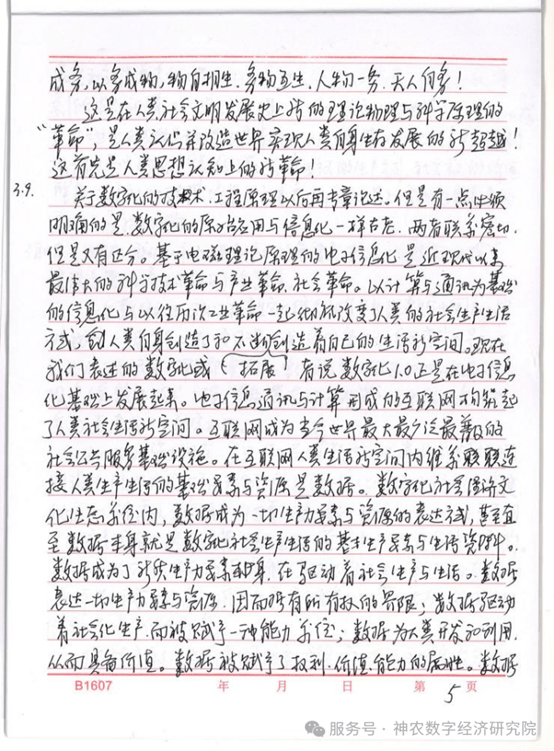 成象,以象成物,物自相生,象物互生,人物一象,天人同象!
这是在人类社会文明发展史上新的理论物理与科学原理的
“革命”,是人类认识并改造世界实现人类自身生存发展的新超越!
这首先是人类思想认知上的新革命!
3.9.
关于数字化的技术、工程原理以后再专章论述。但是有一点必须
明确的是,数字化的原始应用与信息化一样古老,两者联系密切,
但是又有区分。基于电磁理论原理的电子信息化是近现代以来
最伟大的科学技术革命与产业革命、社会革命。以计算与通讯为基础
的信息化与以往历次工业革命一起彻底改变了人类的社会生产生活
方式,为人类自身创造了和不断创造着自己的生活新空间。现在
我们表述的数字化或(拓展)有说数字化1.0正是在电子信息
化基础上发展起来。电子信息通讯与计算形成的互联网构筑起
了人类社会生活新空间。互联网成为当今世界最大最广泛最普及的
社会公共服务基础设施。在互联网人类生活新空间内维系联连
接人类生产生活的基础要素与资源是数据。数字化社会经济文
化生态系统内,数据成为一切生产力要素与资源的表达方式,甚至直
至数据本身就是数字化社会生产生活的基本生产要素与生活资料。
数据成为了新质生产力要素本身,在驱动着社会生产与生活。数据
表达一切生产力要素与资源,因而拥有所有权的界限;数据驱动
着社会化生产,而被赋予一种能力系统;数据为人类开发和利用,
从而具备价值。数据被赋予了权利、价值、能力的属性。数据
B1607 年 月 日 第 5 页
服务号·神农数字经济研究院